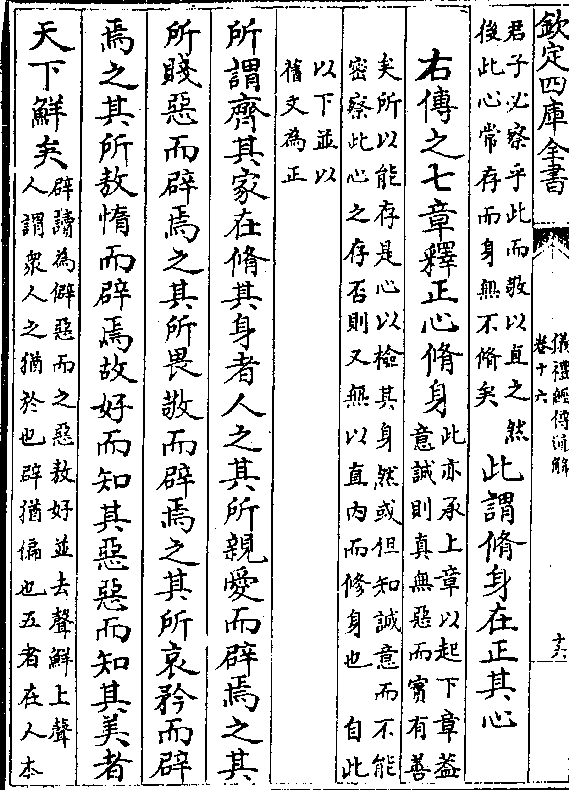 欽定四庫全書
儀禮經傳通解
卷十六
十六
君子必察乎此而敬以直之然
後此心常存而身無不脩矣
此謂脩身在正其心
右傳之七章釋正心脩身
此亦承上章以起下章蓋
意誠則真無惡而實有善
矣所以能存是心以檢其身然或但知誠意而不能
密察此心之存否則又無以直内而修身也 自此
以下並以
舊文為正
所謂齊其家在脩其身者人之其所親愛而辟焉之其
所賤惡而辟焉之其所畏敬而辟焉之其所哀矜而辟
焉之其所敖惰而辟焉故好而知其惡惡而知其美者
天下鮮矣
辟讀為僻惡而之惡敖好並去聲鮮上聲
人謂衆人之猶於也辟猶偏也五者在人本